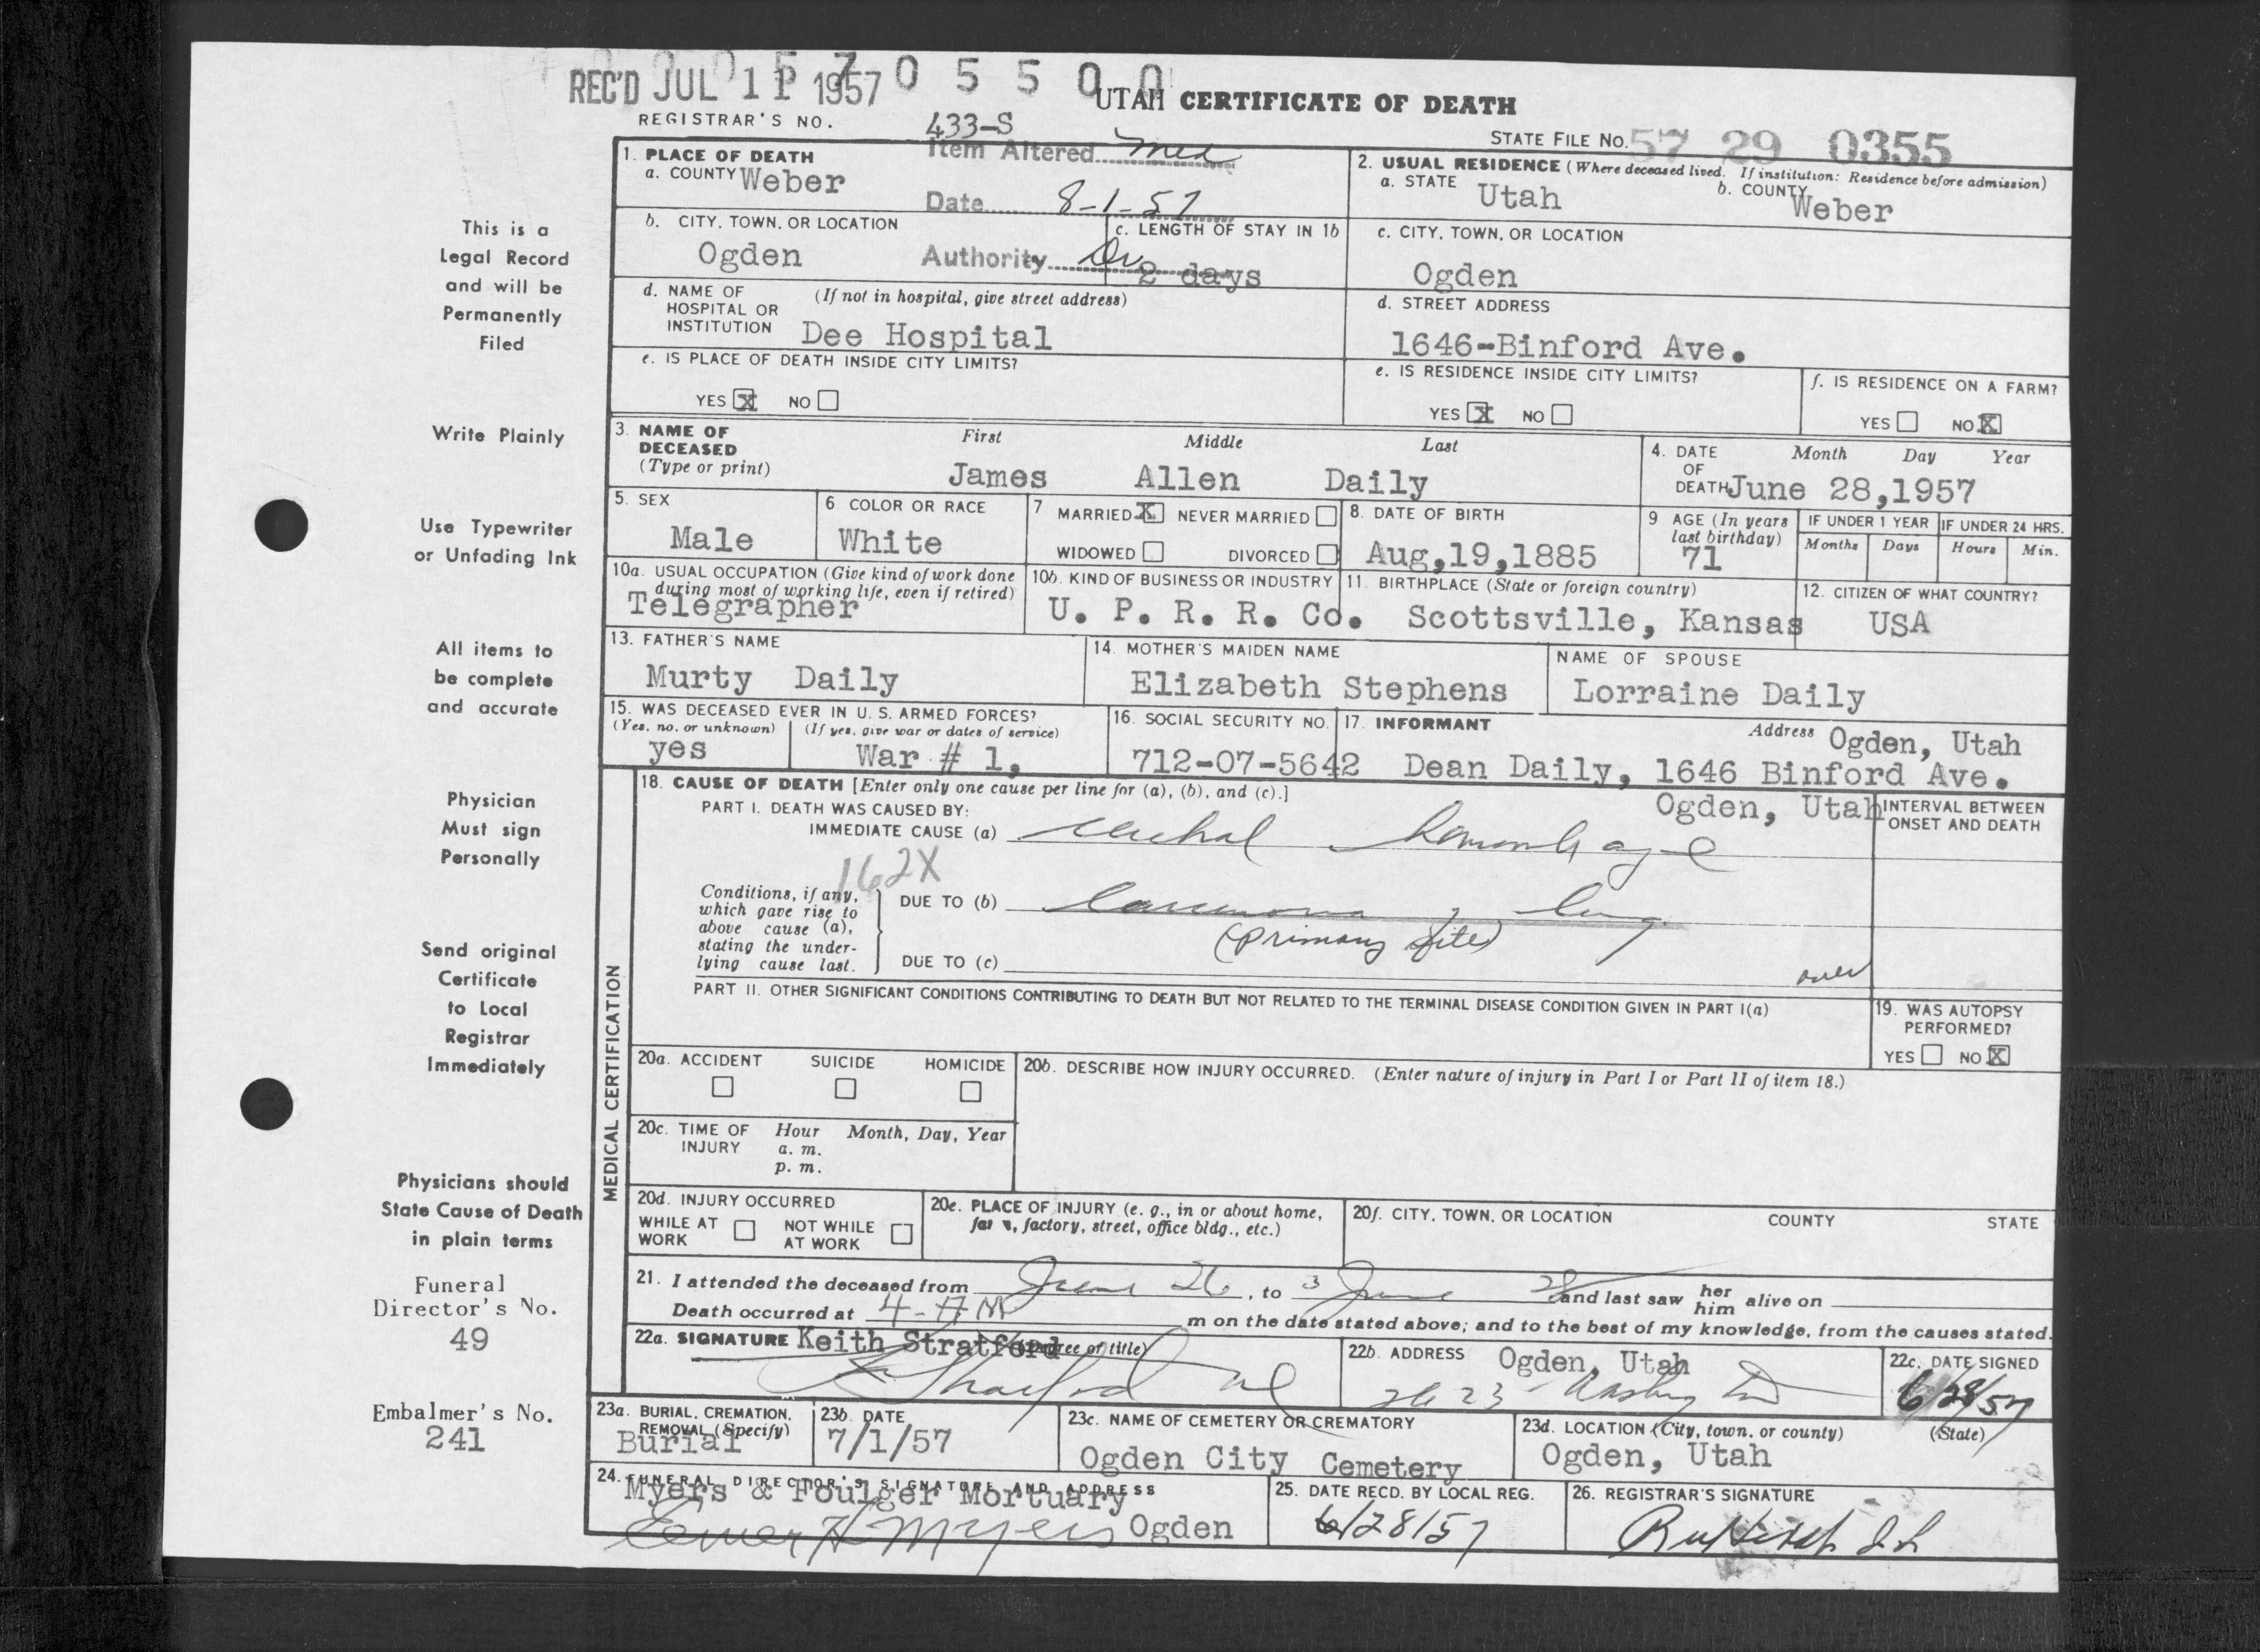 REC'D JUL 11 1957 0 5 5 0 0
UTAH CERTIFICATE OF DEATH
REGISTRAR'S NO. 433-S
STATE FILE NO. 57 29 0355
Item Altered Med
Date 8-1-57
Authority Dr
This is a
Legal Record
and will be
Permanently
Filed
1. PLACE OF DEATH
a. COUNTY Weber
2. USUAL RESIDENCE (Where deceased lived. If institution: Residence before admission)
a. STATE Utah b. COUNTY Weber
b. CITY, TOWN, OR LOCATION
Ogden
c. LENGTH OF STAY IN 1b
2 days
c. CITY, TOWN, OR LOCATION
Ogden
d. NAME OF HOSPITAL OR INSTITUTION (If not in hospital, give street address)
Dee Hospital
d. STREET ADDRESS
1646-Binford Ave.
e. IS PLACE OF DEATH INSIDE CITY LIMITS?
YES X NO
e. IS RESIDENCE INSIDE CITY LIMITS?
YES X NO
f. IS RESIDENCE ON A FARM?
YES NO X
Write Plainly
3. NAME OF DECEASED (Type or print)
First Middle Last
James Allen Daily
4. DATE OF DEATH Month Day Year
June 28,1957
Use Typewriter
or Unfading Ink
5. SEX
Male
6 COLOR OR RACE
White
7 MARRIED X NEVER MARRIED
WIDOWED DIVORCED
8. DATE OF BIRTH
Aug,19,1885
9 AGE (In years last birthday)
71
IF UNDER 1 YEAR IF UNDER 24 HRS.
Months Days Hours Min.
10a. USUAL OCCUPATION (Give kind of work done during most of working life, even if retired)
Telegrapher
10b. KIND OF BUSINESS OR INDUSTRY
U. P. R. R. Co.
11. BIRTHPLACE (State or foreign country)
Scottsville, Kansas
12. CITIZEN OF WHAT COUNTRY?
USA
All items to
be complete
and accurate
13. FATHER'S NAME
Murty Daily
14. MOTHER'S MAIDEN NAME
Elizabeth Stephens
NAME OF SPOUSE
Lorraine Daily
15. WAS DECEASED EVER IN U. S. ARMED FORCES?
(Yes, no, or unknown) (If yes, give war or dates of service)
yes War # 1,
16. SOCIAL SECURITY NO.
712-07-5642
17. INFORMANT Address Ogden, Utah
Dean Daily, 1646 Binford Ave.
Ogden, Utah
MEDICAL CERTIFICATION
Physician
Must sign
Personally
18. CAUSE OF DEATH [Enter only one cause per line for (a), (b), and (c).]
PART I. DEATH WAS CAUSED BY:
IMMEDIATE CAUSE (a) hemorrhage
INTERVAL BETWEEN ONSET AND DEATH
162X
Conditions, if any, which gave rise to above cause (a), stating the underlying cause last.
DUE TO (b) Carcinoma of lung
(primary site)
DUE TO (c)
over
Send original
Certificate
to Local
Registrar
Immediately
PART II. OTHER SIGNIFICANT CONDITIONS CONTRIBUTING TO DEATH BUT NOT RELATED TO THE TERMINAL DISEASE CONDITION GIVEN IN PART I(a)
19. WAS AUTOPSY PERFORMED?
YES NO X
20a. ACCIDENT SUICIDE HOMICIDE
20b. DESCRIBE HOW INJURY OCCURRED. (Enter nature of injury in Part I or Part II of item 18.)
20c. TIME OF INJURY Hour Month, Day, Year
a. m.
p. m.
Physicians should
State Cause of Death
in plain terms
20d. INJURY OCCURRED
WHILE AT WORK NOT WHILE AT WORK
20e. PLACE OF INJURY (e. g., in or about home, farm, factory, street, office bldg., etc.)
20f. CITY, TOWN, OR LOCATION COUNTY STATE
21. I attended the deceased from June 26, to June 28 and last saw her him alive on
Death occurred at 4-AM m on the date stated above; and to the best of my knowledge, from the causes stated.
Funeral
Director's No.
49
22a. SIGNATURE Keith Stratford (Degree or title)
K Stratford md
22b. ADDRESS Ogden, Utah
2623
22c. DATE SIGNED
6/28/57
Embalmer's No.
241
23a. BURIAL, CREMATION, REMOVAL (Specify)
Burial
23b. DATE
7/1/57
23c. NAME OF CEMETERY OR CREMATORY
Ogden City Cemetery
23d. LOCATION (City, town, or county) (State)
Ogden, Utah
24. FUNERAL DIRECTOR'S SIGNATURE AND ADDRESS
Myers & Foulger Mortuary
Elmer H Myers Ogden
25. DATE RECD. BY LOCAL REG.
6/28/57
26. REGISTRAR'S SIGNATURE